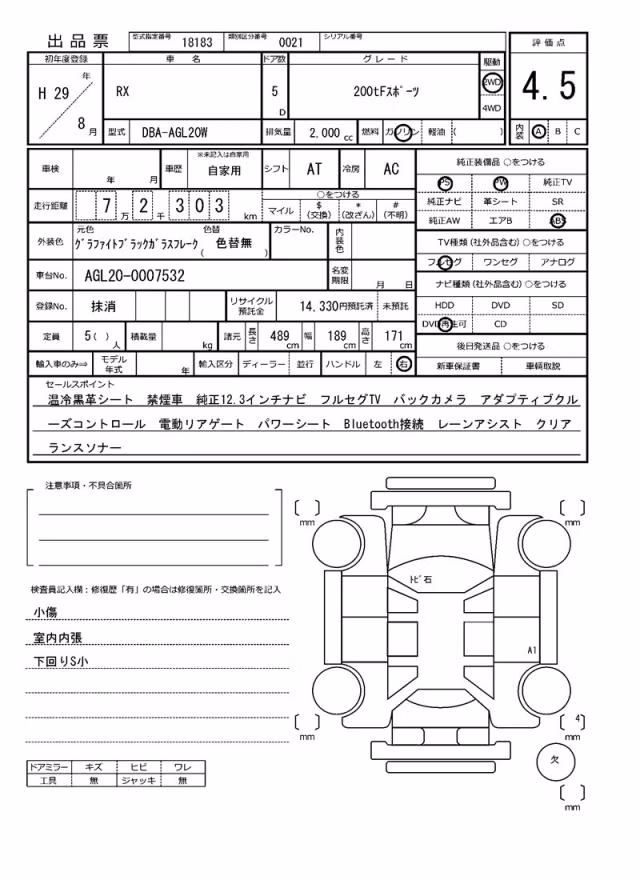 出品票 型式指定番号 18183 類別区分番号 0021 シリアル番号
初年度登録 車名 ドア数 グレード 駆動 評価点
H 29 年 8 月 RX 5 D 200tFスポーツ 2WD 4WD 4.5
型式 DBA-AGL20W 排気量 2,000 cc 燃料 ガソリン 軽油 ( ) 内装 A B C
車検 年 月 車歴 ※未記入は自家用 自家用 シフト AT 冷房 AC
走行距離 7 万 2 千 3 0 3 km
○をつける
マイル $(交換) *(改ざん) #(不明)
外装色 元色 グラファイトブラックガラスフレーク 色替 ( 色替無 ) カラーNo. 内装色
車台No. AGL20-0007532 名変期限 月 日
登録No. 抹消 リサイクル預託金 14,330円預託済 未預託
定員 5( ) 人 積載量 kg 諸元 長さ 489 cm 幅 189 cm 高さ 171 cm
輸入車のみ⇒ モデル年式 年 輸入区分 ディーラー 並行 ハンドル 左 右
純正装備品 ○をつける
PS PW 純正TV
純正ナビ 革シート SR
純正AW エアB ABS
TV種類(社外品含む)○をつける
フルセグ ワンセグ アナログ
ナビ種類(社外品含む)○をつける
HDD DVD SD
DVD再生可 CD
後日発送品 ○をつける
新車保証書 車輌取説
セールスポイント
温冷黒革シート 禁煙車 純正12.3インチナビ フルセグTV バックカメラ アダプティブクル
ーズコントロール 電動リアゲート パワーシート Bluetooth接続 レーンアシスト クリア
ランスソナー
注意事項・不具合箇所
検査員記入欄：修復歴「有」の場合は修復箇所・交換箇所を記入
小傷
室内内張
下回りS小
ドアミラー キズ ヒビ ワレ
工具 無 ジャッキ 無
[ ] mm
[ ] mm
トビ石
A1
[ ] mm
[ 4 ] mm
欠
[ ] mm